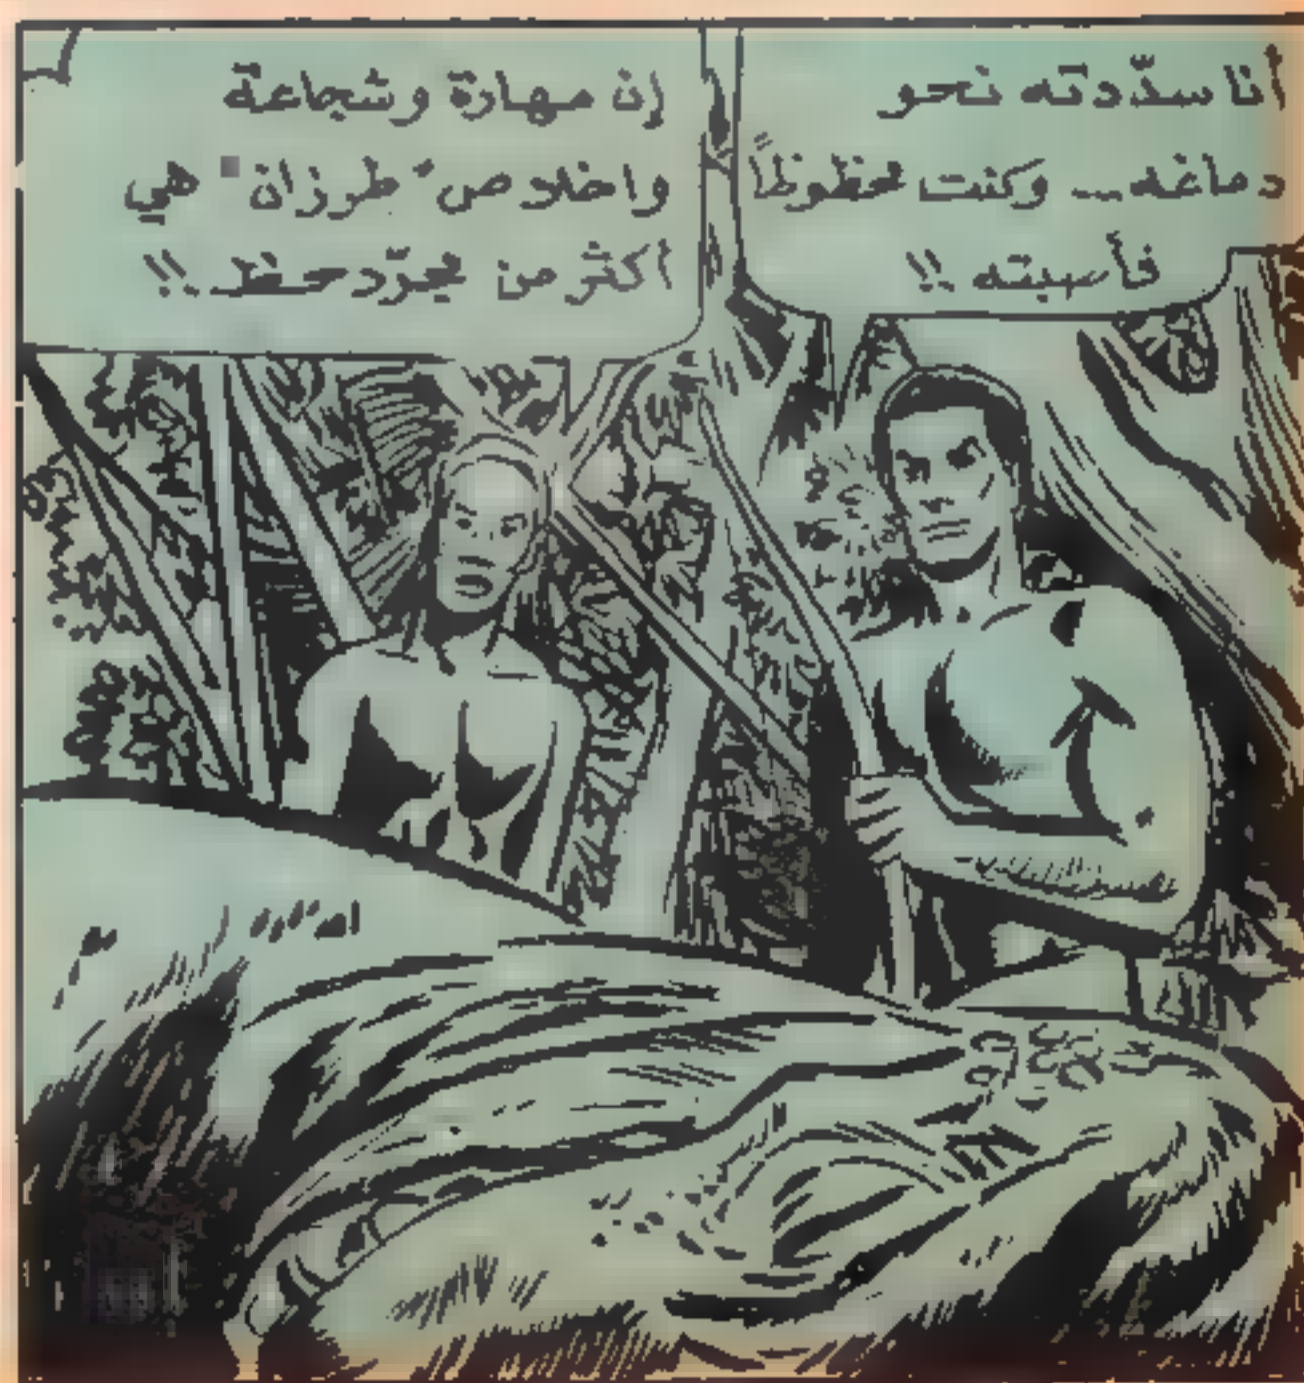 أنا سدّدته نحو
دماغه... وكنت محظوظاً
فأصبته !!
إن مهارة وشجاعة
واخلاص "طرزان" هي
أكثر من مجرّد حظ !!